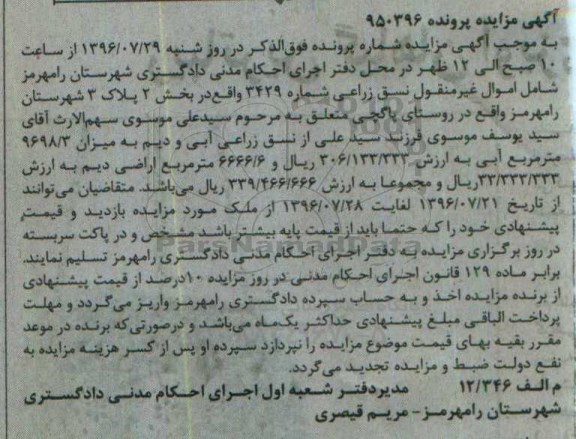 آگهی مزایده پرونده ۹۵۰۳۹۶
به موجب آگهی مزایده شماره پرونده فوق‌الذکر در روز شنبه ۱۳۹۶/۰۷/۲۹ از ساعت
۱۰ صبح الی ۱۲ ظهر در محل دفتر اجرای احکام مدنی دادگستری شهرستان رامهرمز
شامل اموال غیرمنقول نسق زراعی شماره ۳۴۲۹ واقع‌در بخش ۲ پلاک ۳ شهرستان
رامهرمز واقع در روستای پاگچی متعلق به مرحوم سیدعلی موسوی سهم‌الارث آقای
سید یوسف موسوی فرزند سید علی از نسق زراعی آبی و دیم به میزان ۹۶۹۸/۳
مترمربع آبی به ارزش ۳۰۶/۱۳۳/۳۳۳ ریال و ۶۶۶۶/۶ مترمربع اراضی دیم به ارزش
۳۳/۳۳۳/۳۳۳ریال و مجموعا به ارزش ۳۳۹/۴۶۶/۶۶۶ ریال می‌باشد. متقاضیان می‌توانند
از تاریخ ۱۳۹۶/۰۷/۲۱ لغایت ۱۳۹۶/۰۷/۲۸ از ملک مورد مزایده بازدید و قیمت
پیشنهادی خود را که حتما باید از قیمت پایه بیشتر باشد مشخص و در پاکت سربسته
در روز برگزاری مزایده به دفتر اجرای احکام مدنی دادگستری رامهرمز تسلیم نمایند.
برابر ماده ۱۲۹ قانون اجرای احکام مدنی در روز مزایده ۱۰درصد از قیمت پیشنهادی
از برنده مزایده اخذ و به حساب سپرده دادگستری رامهرمز واریز می‌گردد و مهلت
پرداخت الباقی مبلغ پیشنهادی حداکثر یک‌ماه می‌باشد و درصورتی‌که برنده در موعد
مقرر بقیه بهای قیمت موضوع مزایده را نپردازد سپرده او پس از کسر هزینه مزایده به
نفع دولت ضبط و مزایده تجدید می‌گردد.
م الف ۱۲/۳۴۶ مدیردفتر شعبه اول اجرای احکام مدنی دادگستری
شهرستان رامهرمز- مریم قیصری
ParsNamadData